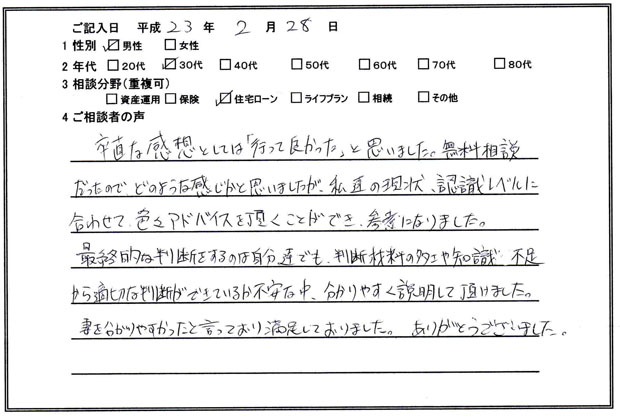 ご記入日 平成 23 年 2 月 28 日
1 性別 ☑男性 □女性
2 年代 □20代 ☑30代 □40代 □50代 □60代 □70代 □80代
3 相談分野(重複可)
□資産運用 □保険 ☑住宅ローン □ライフプラン □相続 □その他
4 ご相談者の声
卒直な感想としては「行って良かった」と思いました。無料相談
だったので どのような感じかと思いましたが、私達の現状、認識レベルに
合わせて、色々アドバイスを頂くことができ、参考になりました。
最終的な判断をするのは自分達でも、判断材料の多さや知識 不足
から適切な判断ができているか不安な中、分かりやすく説明して頂けました。
妻も分かりやすかったと言っており満足しておりました。 ありがとうございました。